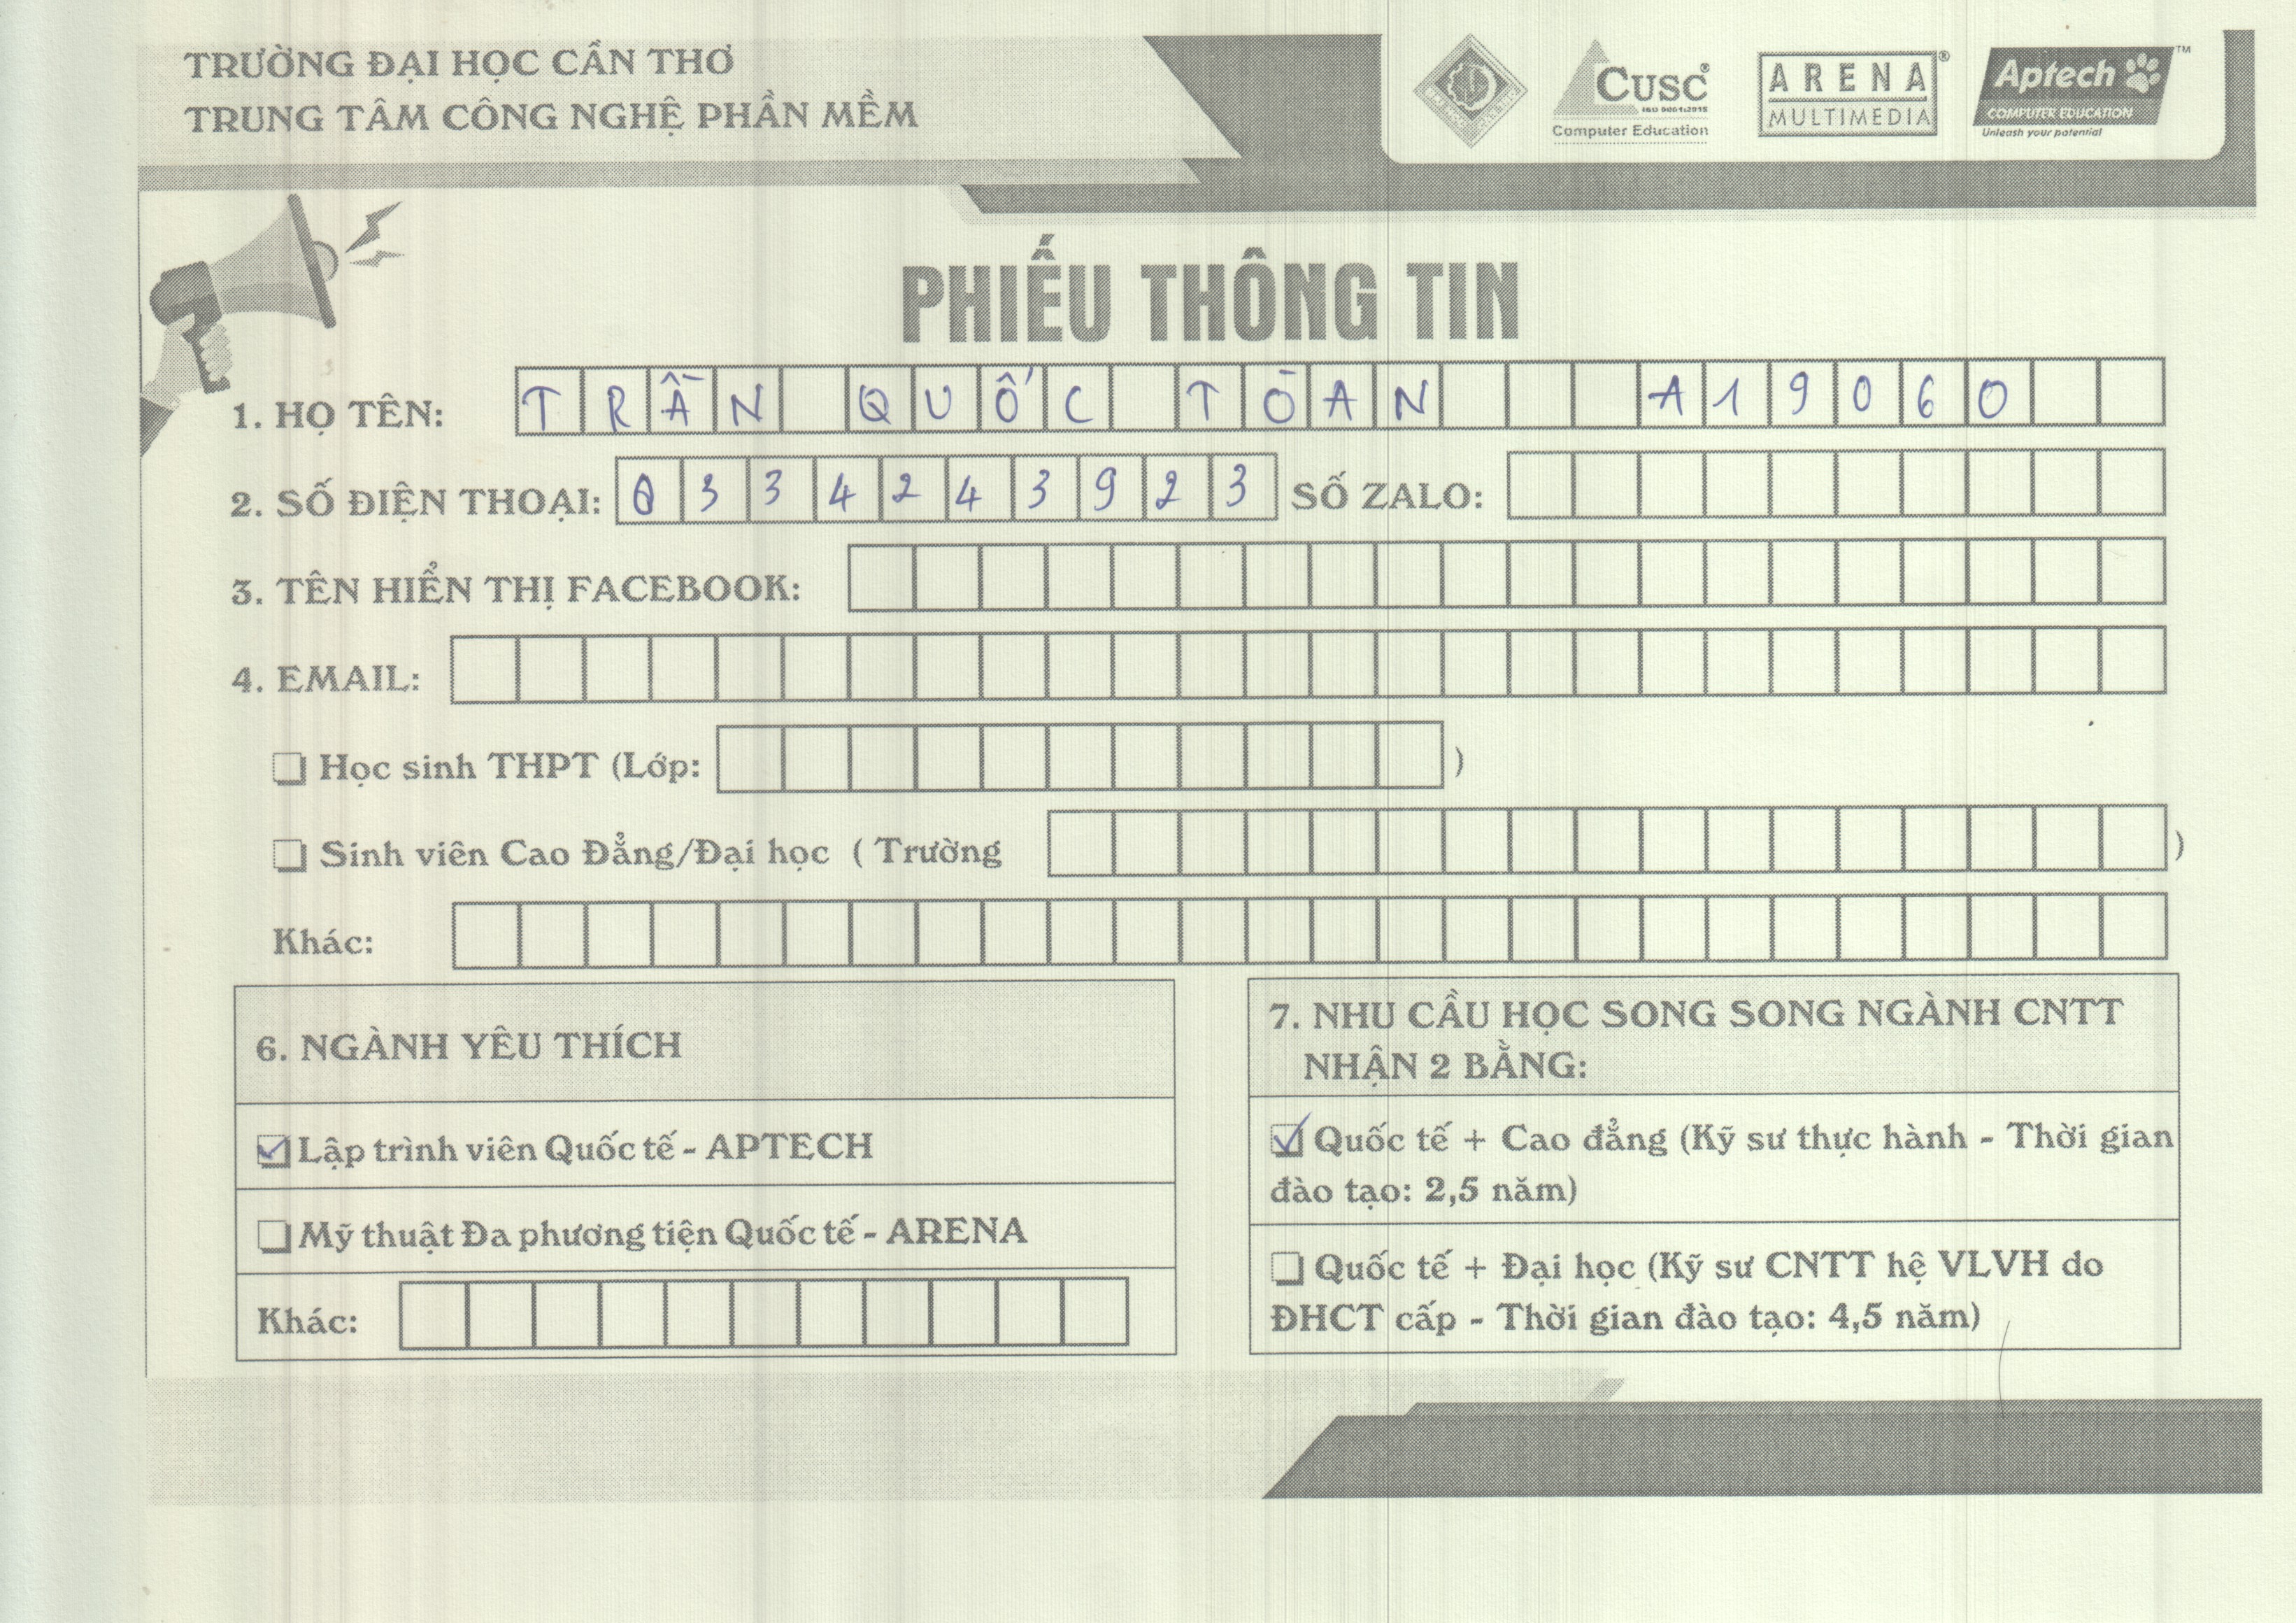 TRƯỜNG ĐẠI HỌC CẦN THƠ
TRUNG TÂM CÔNG NGHỆ PHẦN MỀM
CUSC®
ISO 9001:2015
Computer Education
ARENA®
MULTIMEDIA
Aptech™
COMPUTER EDUCATION
Unleash your potential
PHIẾU THÔNG TIN
1. HỌ TÊN: TRẦN QUỐC TÒAN A19060
2. SỐ ĐIỆN THOẠI: 0334243923 SỐ ZALO:
3. TÊN HIỂN THỊ FACEBOOK:
4. EMAIL:
Học sinh THPT (Lớp: )
Sinh viên Cao Đẳng/Đại học ( Trường )
Khác:
6. NGÀNH YÊU THÍCH
Lập trình viên Quốc tế - APTECH
Mỹ thuật Đa phương tiện Quốc tế - ARENA
Khác:
7. NHU CẦU HỌC SONG SONG NGÀNH CNTT
NHẬN 2 BẰNG:
Quốc tế + Cao đẳng (Kỹ sư thực hành - Thời gian
đào tạo: 2,5 năm)
Quốc tế + Đại học (Kỹ sư CNTT hệ VLVH do
ĐHCT cấp - Thời gian đào tạo: 4,5 năm)